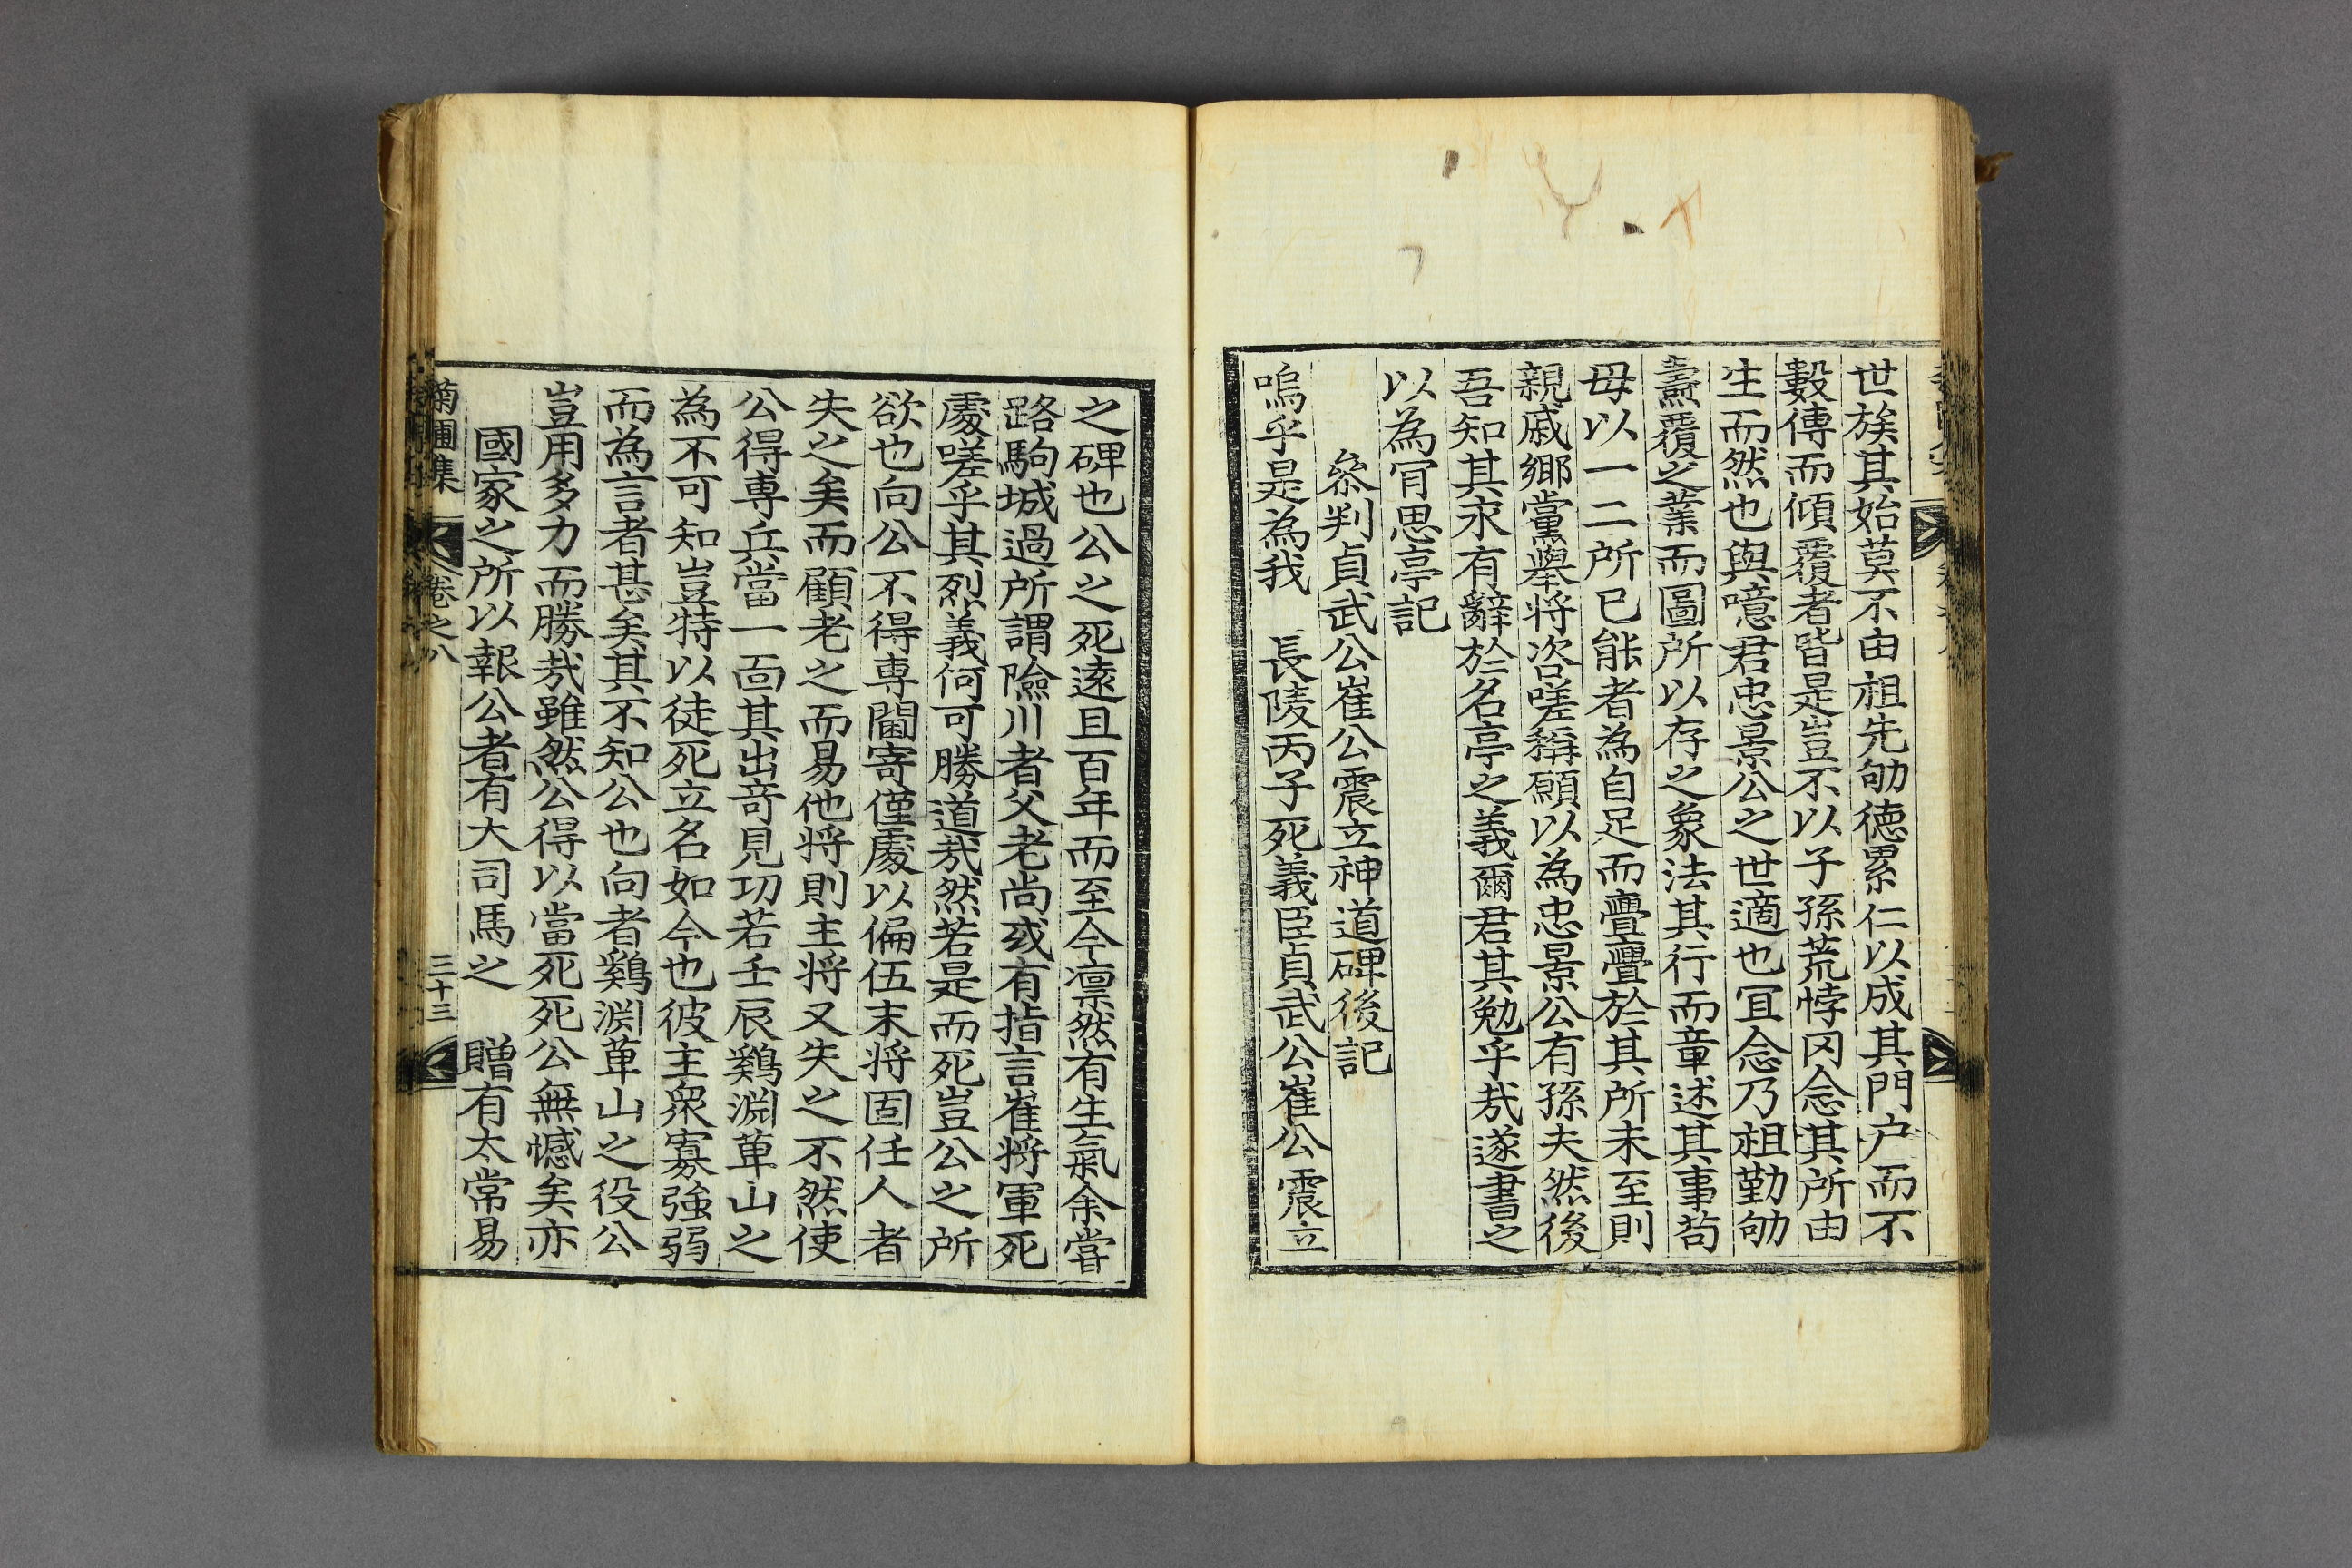 世族其始莫不由祖先劬德累仁以成其門户而不
數傳而傾覆者皆是豈不以子孫荒悖罔念其所由
生而然也與噫君忠景公之世適也冝念乃祖勤劬
燾覆之業而圖所以存之象法其行而章述其事苟
毋以一二所已能者為自足而亹亹於其所未至則
親戚鄉黨舉將咨嗟稱願以為忠景公有孫夫然後
吾知其永有辭於名亭之義爾君其勉乎㢤遂書之
以為肎思亭記
叅判貞武公崔公震立神道碑後記
嗚乎是為我　長陵丙子死義臣貞武公崔公震立
之碑也公之死逺且百年而至今凛然有生氣余甞
路駒城過所謂險川者父老尚或有指言崔將軍死
䖏嗟乎其烈義何可勝道㢤然若是而死豈公之所
欲也向公不得專閫寄僅䖏以偏伍末将固任人者
失之矣而顧老之而易他將則主將又失之不然使
公得專兵當一面其出竒見功若壬辰鷄淵萆山之
為不可知豈特以徒死立名如今也彼主衆寡強弱
而為言者甚矣其不知公也向者鷄淵萆山之役公
豈用多力而勝㢤雖然公得以當死死公無憾矣亦
國家之所以報公者有大司馬之　贈有太常易
菊圃集
卷之八
三十三